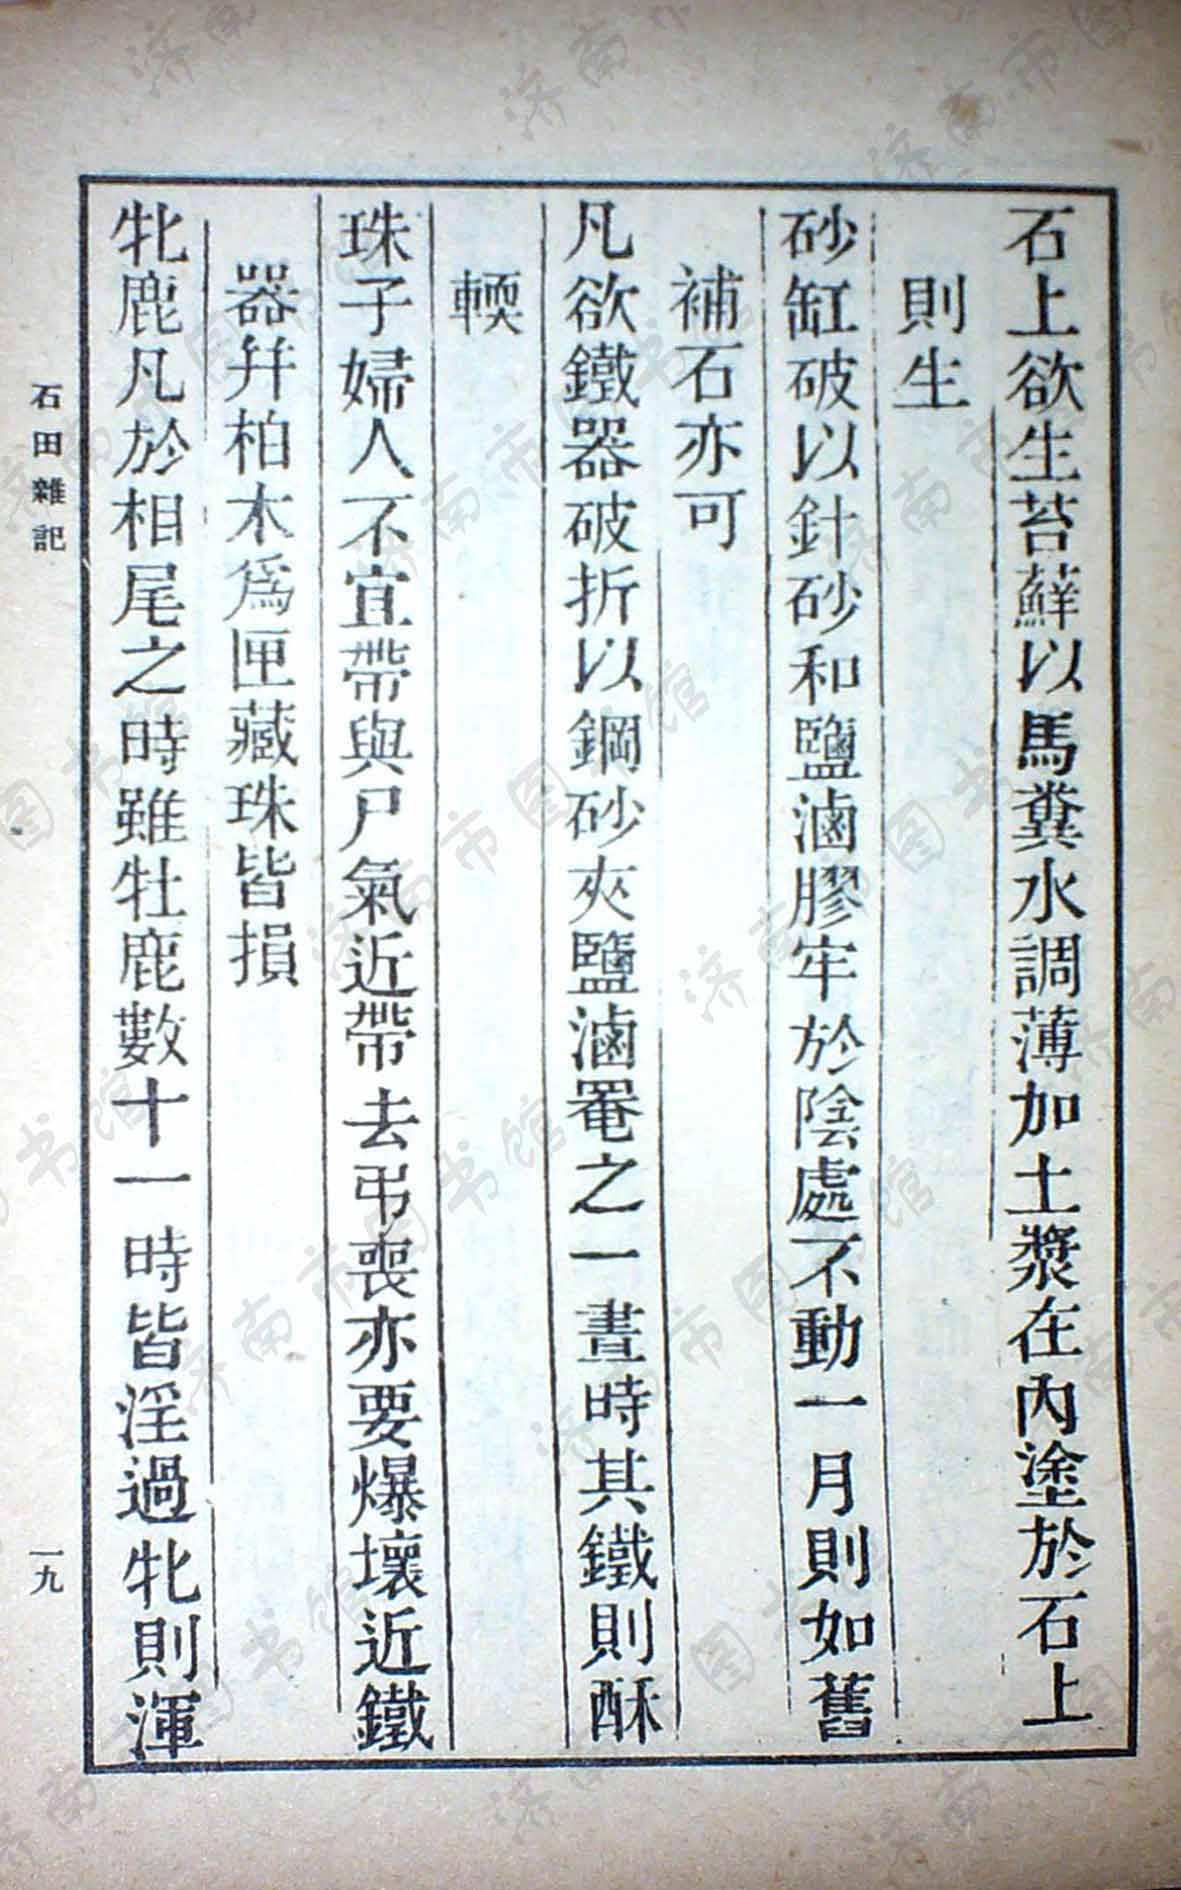 石上欲生苔蘚以馬糞水調薄加土漿在內塗於石上
則生
砂缸破以針砂和鹽滷膠牢於陰處不動一月則如舊
補石亦可
凡欲鐵器破折以鋼砂夾鹽滷罨之一晝時其鐵則酥
輭
珠子婦人不宜帶與尸氣近帶去弔喪亦要爆壞近鐵
器幷柏木爲匣藏珠皆損
牝鹿凡於相尾之時雖牡鹿數十一時皆淫過牝則渾
石田雜記
一九
济南市图书馆